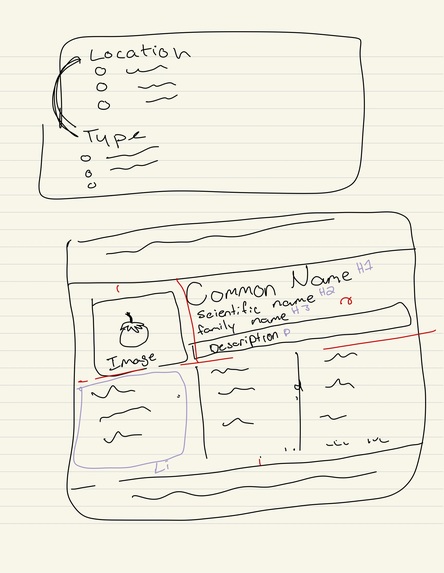 Location
Type
Common Name H1
Scientific name H2
family name H3
Description P
Image
Li